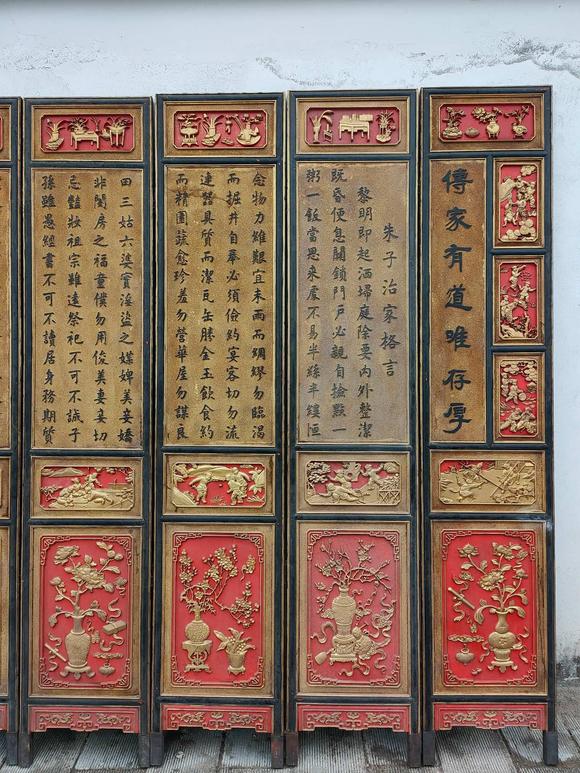 傳家有道唯存厚
朱子治家格言
黎明即起洒埽庭除要內外整潔
既昏便息關鎖門戶必親自撿點一
粥一飯當思来處不易半絲半縷恒
念物力維艱宜未雨而綢繆勿臨渴
而掘井自奉必須儉約宴客切勿流
連器具質而潔瓦缶勝金玉飲食約
而精園蔬愈珍羞勿營華屋勿謀良
田三姑六婆實淫盜之媒婢美妾嬌
非閨房之福童僕勿用俊美妻妾切
忌豔妝祖宗雖遠祭祀不可不誠子
孫雖愚經書不可不讀居身務期質